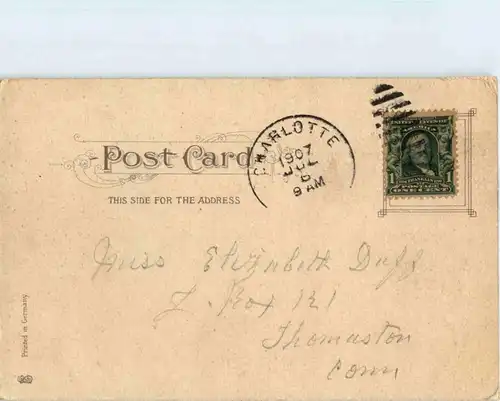 CHARLOTTE
1907
JUL
6
9 AM
POST CARD
THIS SIDE FOR THE ADDRESS
1 1
POSTAGE
ONE CENT
Miss Elizabeth Duff
L. Box 121
Thomaston
Conn
Printed in Germany.